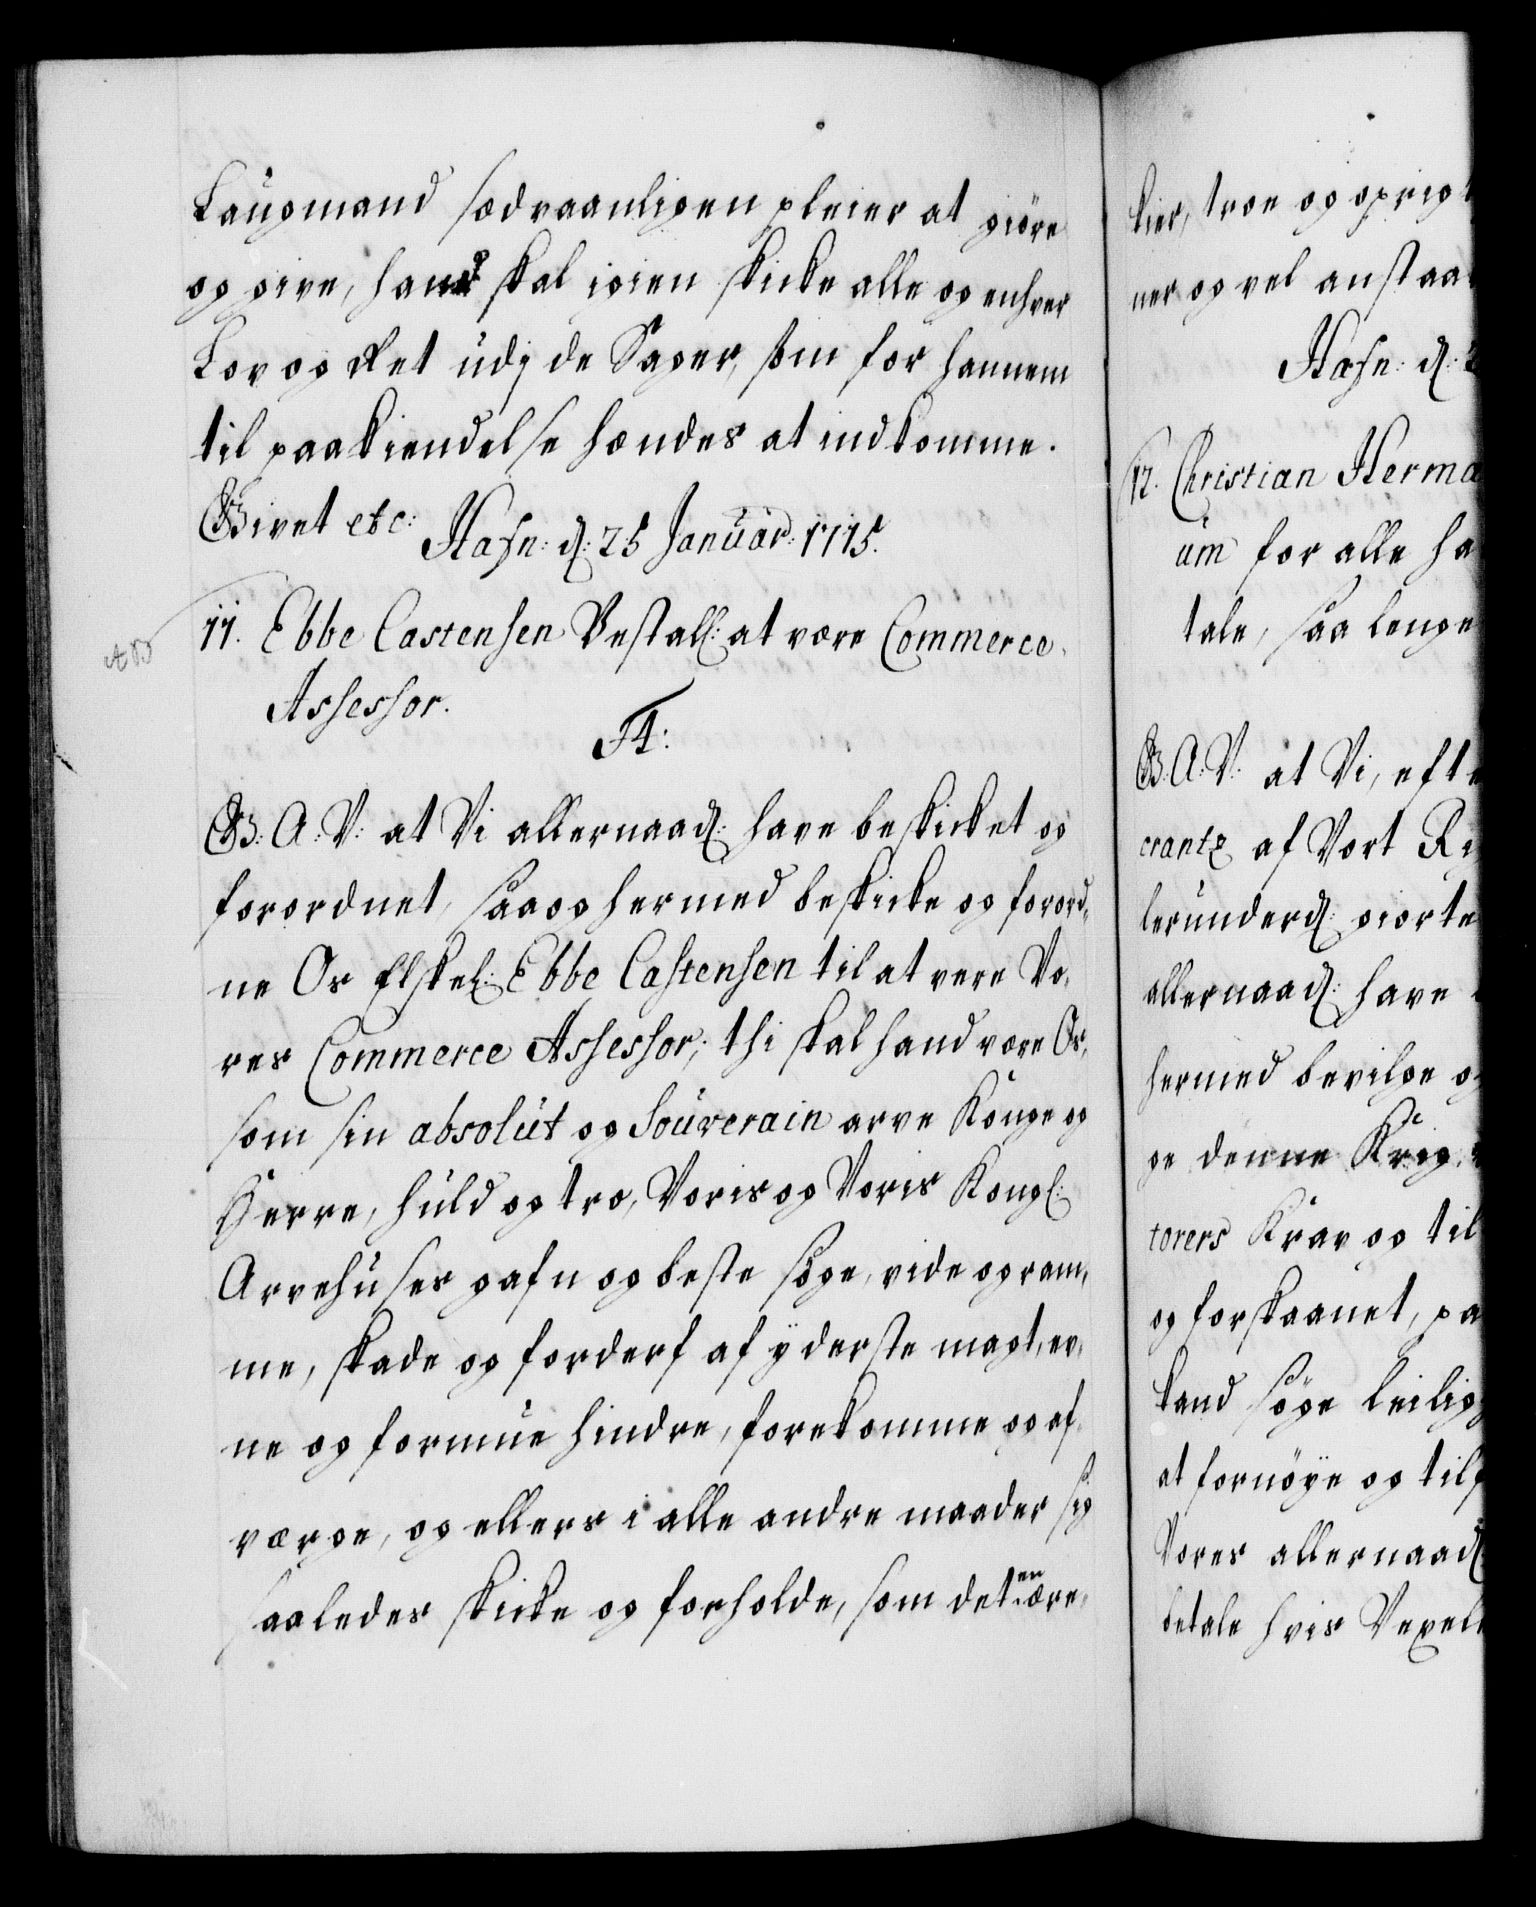 Laugmand sædvaanligen pleier at giöre
og give, hand skal igien skicke alle og enhver
Lov og Ret udj de Sager, som for hannem
til paakiendelse hændes at indkomme.
Givet etc:
Hafn: d: 25 Januar: 1715.
11. Ebbe Castensen Bestall: at være Commerce
Assessor.
F4:
G: A: V: at Vi allernaad: have beskicket og
forordnet, saa og hermed beskicke og forord,
ne Os Elskel: Ebbe Castensen til at være Vo,
res Commerce Assessor; thi skal hand være Os,
som sin absolut og Souverain arve Konge og
Herre, huld og tro, Voris og Voris Kongl:
Arvehuses gafn og beste söge, vide og ram,
me, skade og forderf af yderste magt, ev,
ne og formue hindre, forekomme og af,
værge, og ellers i alle andre maader sig
saaledes skicke og forholde, som det en ære,
kier, troe og oprigt
ner og vel anstaa
Hafn: d: 2
12. Christian Herma
um for alle ha
tale, saa lenge
G: A: V: at Vi, efte
crantz af Vort Ri
lerunderd: giorte
allernaad: have
hermed bevilge og
ge denne Krig,
torers Krav og til
og forskaanet, pa
kand söge leilig
at fornöye og tilf
Vores allernaad:
betale hvis Vexel